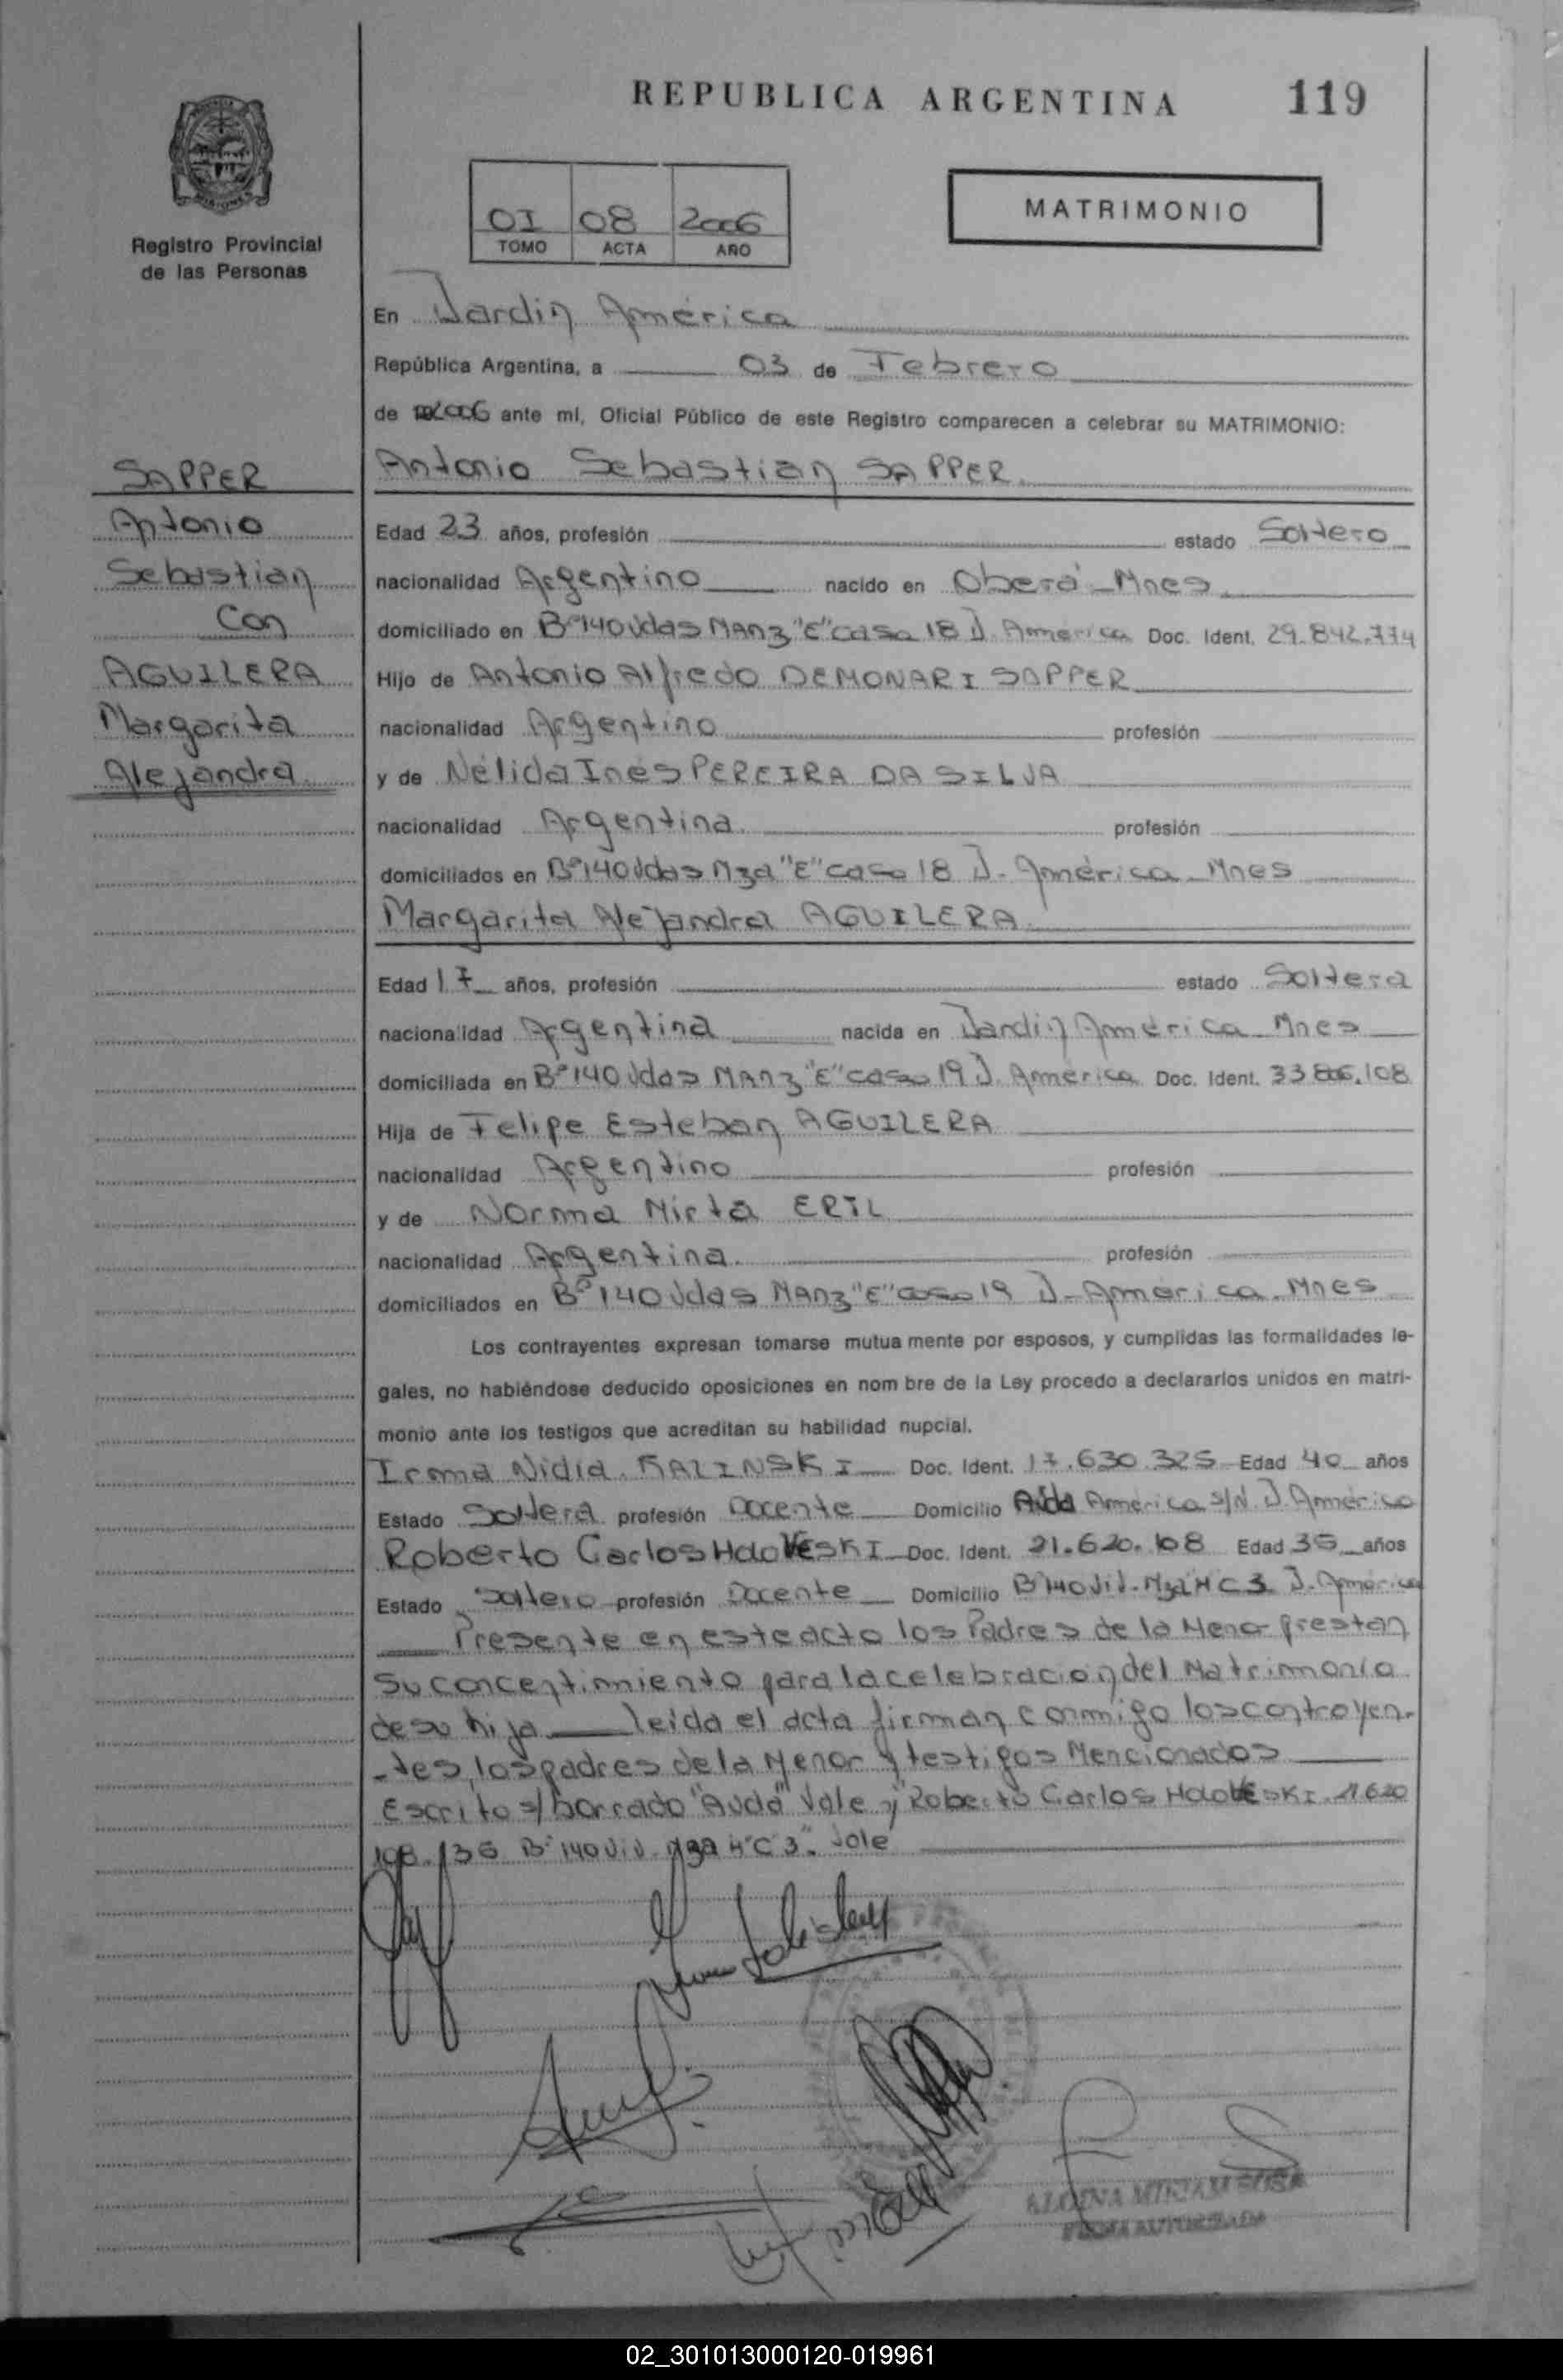 REPUBLICA ARGENTINA 119
Registro Provincial
de las Personas
01 08 2006
TOMO ACTA AÑO
MATRIMONIO
En Jardín América
República Argentina, a 03 de Febrero
de 2006 ante mí, Oficial Público de este Registro comparecen a celebrar su MATRIMONIO:
SAPPER
Antonio
Sebastián
Con
AGUILERA
Margarita
Alejandra
Antonio Sebastián SAPPER
Edad 23 años, profesión estado Soltero
nacionalidad Argentino nacido en Oberá-Mnes
domiciliado en Bº140Vdas MANZ "E" casa 18 J. América Doc. Ident. 29.842.774
Hijo de Antonio Alfredo DEMONARI SAPPER
nacionalidad Argentino profesión
y de Nélida Inés PEREIRA DA SILVA
nacionalidad Argentina profesión
domiciliados en Bº140Vdas Mza "E" casa 18 J. América-Mnes
Margarita Alejandra AGUILERA
Edad 17 años, profesión estado Soltera
nacionalidad Argentina nacida en Jardín América Mnes
domiciliada en Bº140Vdas MANZ "E" casa 19 J. América Doc. Ident.
Hija de Felipe Esteban AGUILERA
nacionalidad Argentino profesión
y de Norma Mirta ERTL
nacionalidad Argentina profesión
domiciliados en Bº140Vdas MANZ "E" casa 19 J-América-Mnes
Los contrayentes expresan tomarse mutua mente por esposos, y cumplidas las formalidades le-
gales, no habiéndose deducido oposiciones en nom bre de la Ley procedo a declararlos unidos en matri-
monio ante los testigos que acreditan su habilidad nupcial.
Irma Nidia KALINSKI Doc. Ident. 17.630.325 Edad 40 años
Estado Soltera profesión Docente Domicilio América s/N. J. América
Roberto Carlos Doc. Ident. 21.620.108 Edad 35 años
Estado Soltero profesión Docente Domicilio Bº140Viv-Mza H C 3 J. América
Presente en este acto los Padres de la Menor prestan
su concentimiento para la celebración del Matrimonio
de su hija leída el acta firman conmigo los contrayen-
-tes, los padres de la Menor y testigos Mencionados
Escrito s/borrado "Avda" Vale y "Roberto Carlos 21620
108 /35 Bº140Viv. Mza H"C"3". Vale
ALCINA MIRIAM SOSA
FIRMA AUTORIZADA
02_301013000120-019961